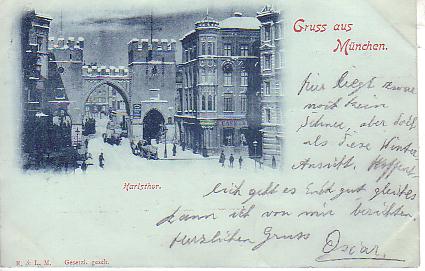 Gruss aus
München.
hier liegt zwar
noch kein
Schnee, aber doch
als diese Winter
Ansicht. Hoffent
Karlsthor.
lich geht es Euch gut gleiches
kann ich von mir berichten.
herzlichen Gruss Oscar.
R. & L. M. Gesetzl. gesch.